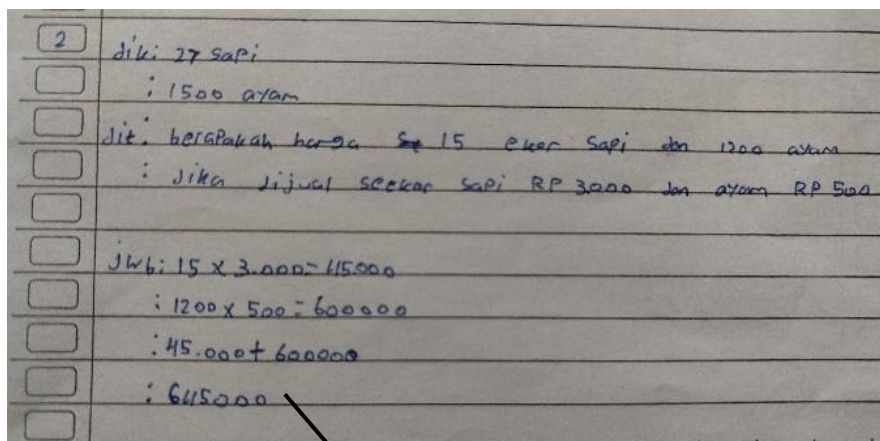 2
dik: 27 sapi
: 1500 ayam
dit: berapakah harga 15 ekor sapi dan 1200 ayam
: jika dijual seekor sapi RP 3.000 dan ayam RP 500
jwb: 15 x 3.000 = 45.000
: 1200 x 500 = 600000
: 45.000 + 600000
: 645000